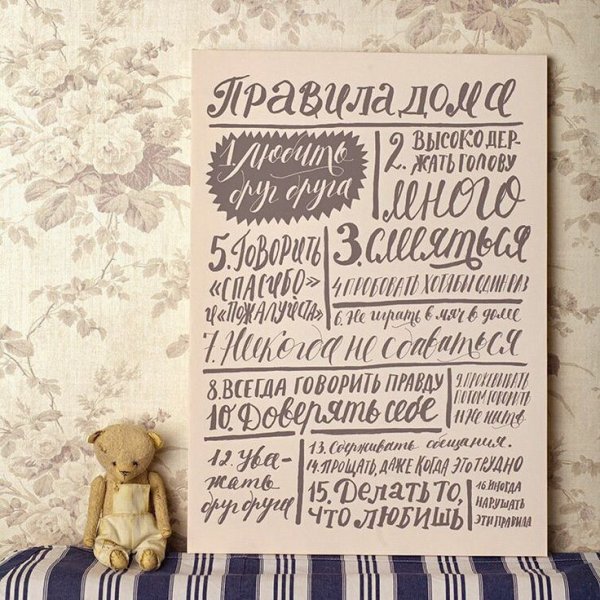 Правила дома
1. Любить
друг друга
2. Высоко дер-
жать голову
3. Много
смеяться
4. Пробовать хотя бы один раз
5. Говорить
«спасибо»
и «пожалуйста»
6. Не играть в мяч в доме
7. Никогда не сдаваться
8. Всегда говорить правду
9. Прожевывать
потом говорить
10. Доверять себе
11. Не ныть
12. Ува-
жать
друг друга
13. Сдерживать обещания.
14. Прощать, даже когда это трудно
15. Делать то,
что любишь
16. Иногда
нарушать
эти правила